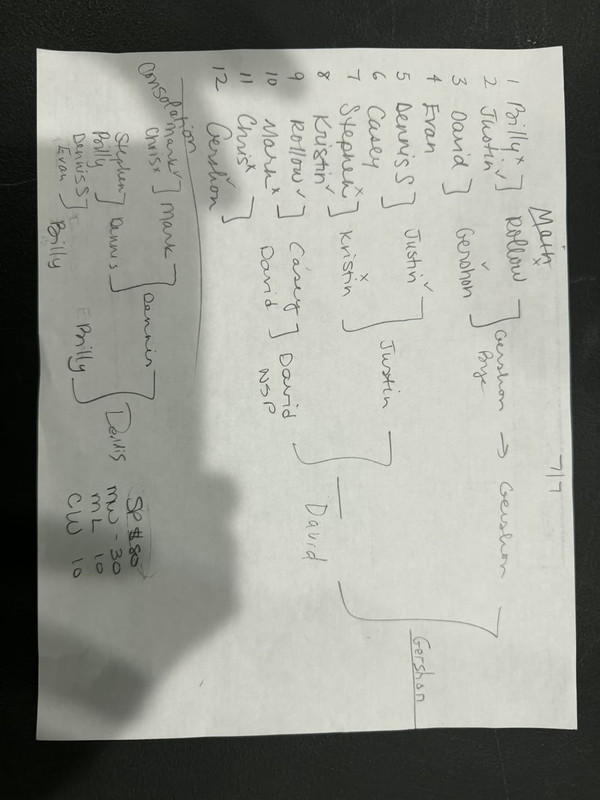 7/7
Main
1 Billy x
2 Justin ✓
3 David
4 Evan
5 Dennis S
6 Casey
7 Stephen x
8 Kristin ✓
9 Rollow ✓
10 Mark x
11 Chris x
12 Gershon ✓
Rollow x
Gershon ✓
Justin ✓
Kristin x
Casey
David
Gershon → Gershon
Bye
Justin
David
NSP
David
Gershon
Consolation
Mark ✓
Chris x
Stephen
Billy
Dennis S
Evan
Mark
Dennis
Billy
Dennis
Billy
Dennis
SP $80
MW - 30
ML 10
CW 10